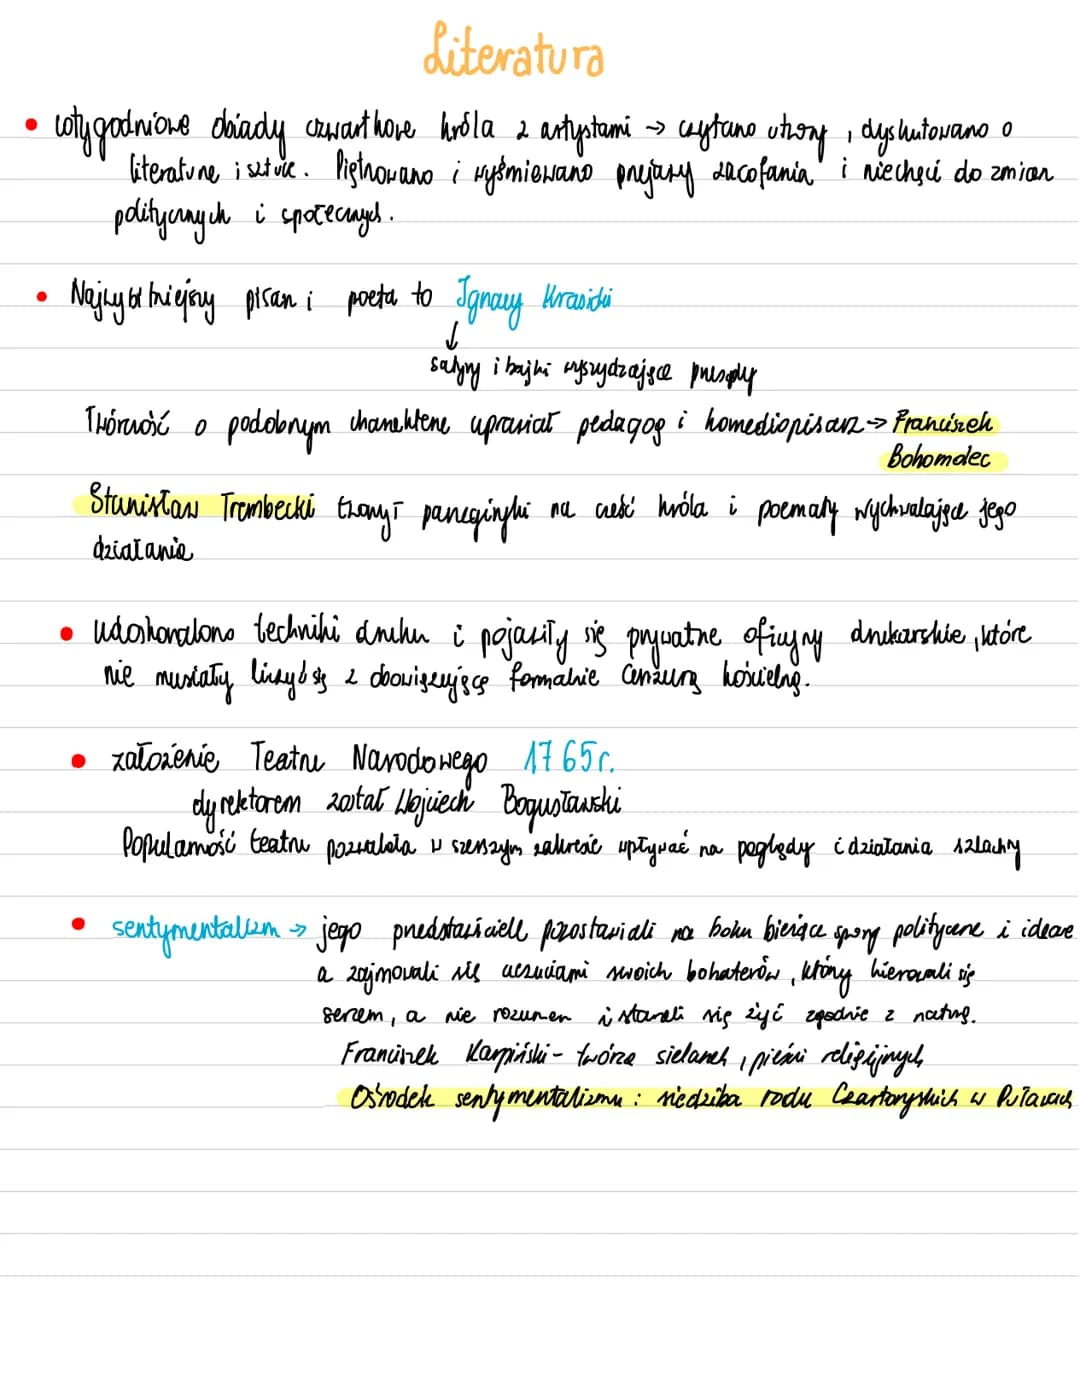 Literatura
• cotygodniowe obiady czwartkowe króla z artystami → czytano utwory, dyskutowano o
literaturze i sztuce. Piętnowano i wyśmiewano przejawy zacofania i niechęci do zmian
politycznych i społecznych.
• Najwybitniejszy pisarz i poeta to Ignacy Krasicki
↓
satyry i bajki wyszydzające przesądy
Twórczość o podobnym charakterze uprawiał pedagog i komediopisarz → Franciszek
Bohomolec
Stanisław Trembecki tworzył panegiryki na cześć króla i poematy wychwalające jego
działanie
• udoskonalono techniki druku i pojawiły się prywatne oficyny drukarskie, które
nie musiały liczyć się z obowiązującą formalnie cenzurą kościelną.
• założenie Teatru Narodowego 1765r.
dyrektorem został Wojciech Bogusławski
Popularność teatru pozwalała w szerszym zakresie wpływać na poglądy i działania szlachty
• sentymentalizm → jego przedstawiciele pozostawiali na boku bieżące spory polityczne i ideowe
a zajmowali się uczuciami swoich bohaterów, którzy kierowali się
sercem, a nie rozumem i starali się żyć zgodnie z naturą.
Franciszek Karpiński - twórca sielanek, pieśni religijnych
Ośrodek sentymentalizmu: siedziba rodu Czartoryskich w Puławach